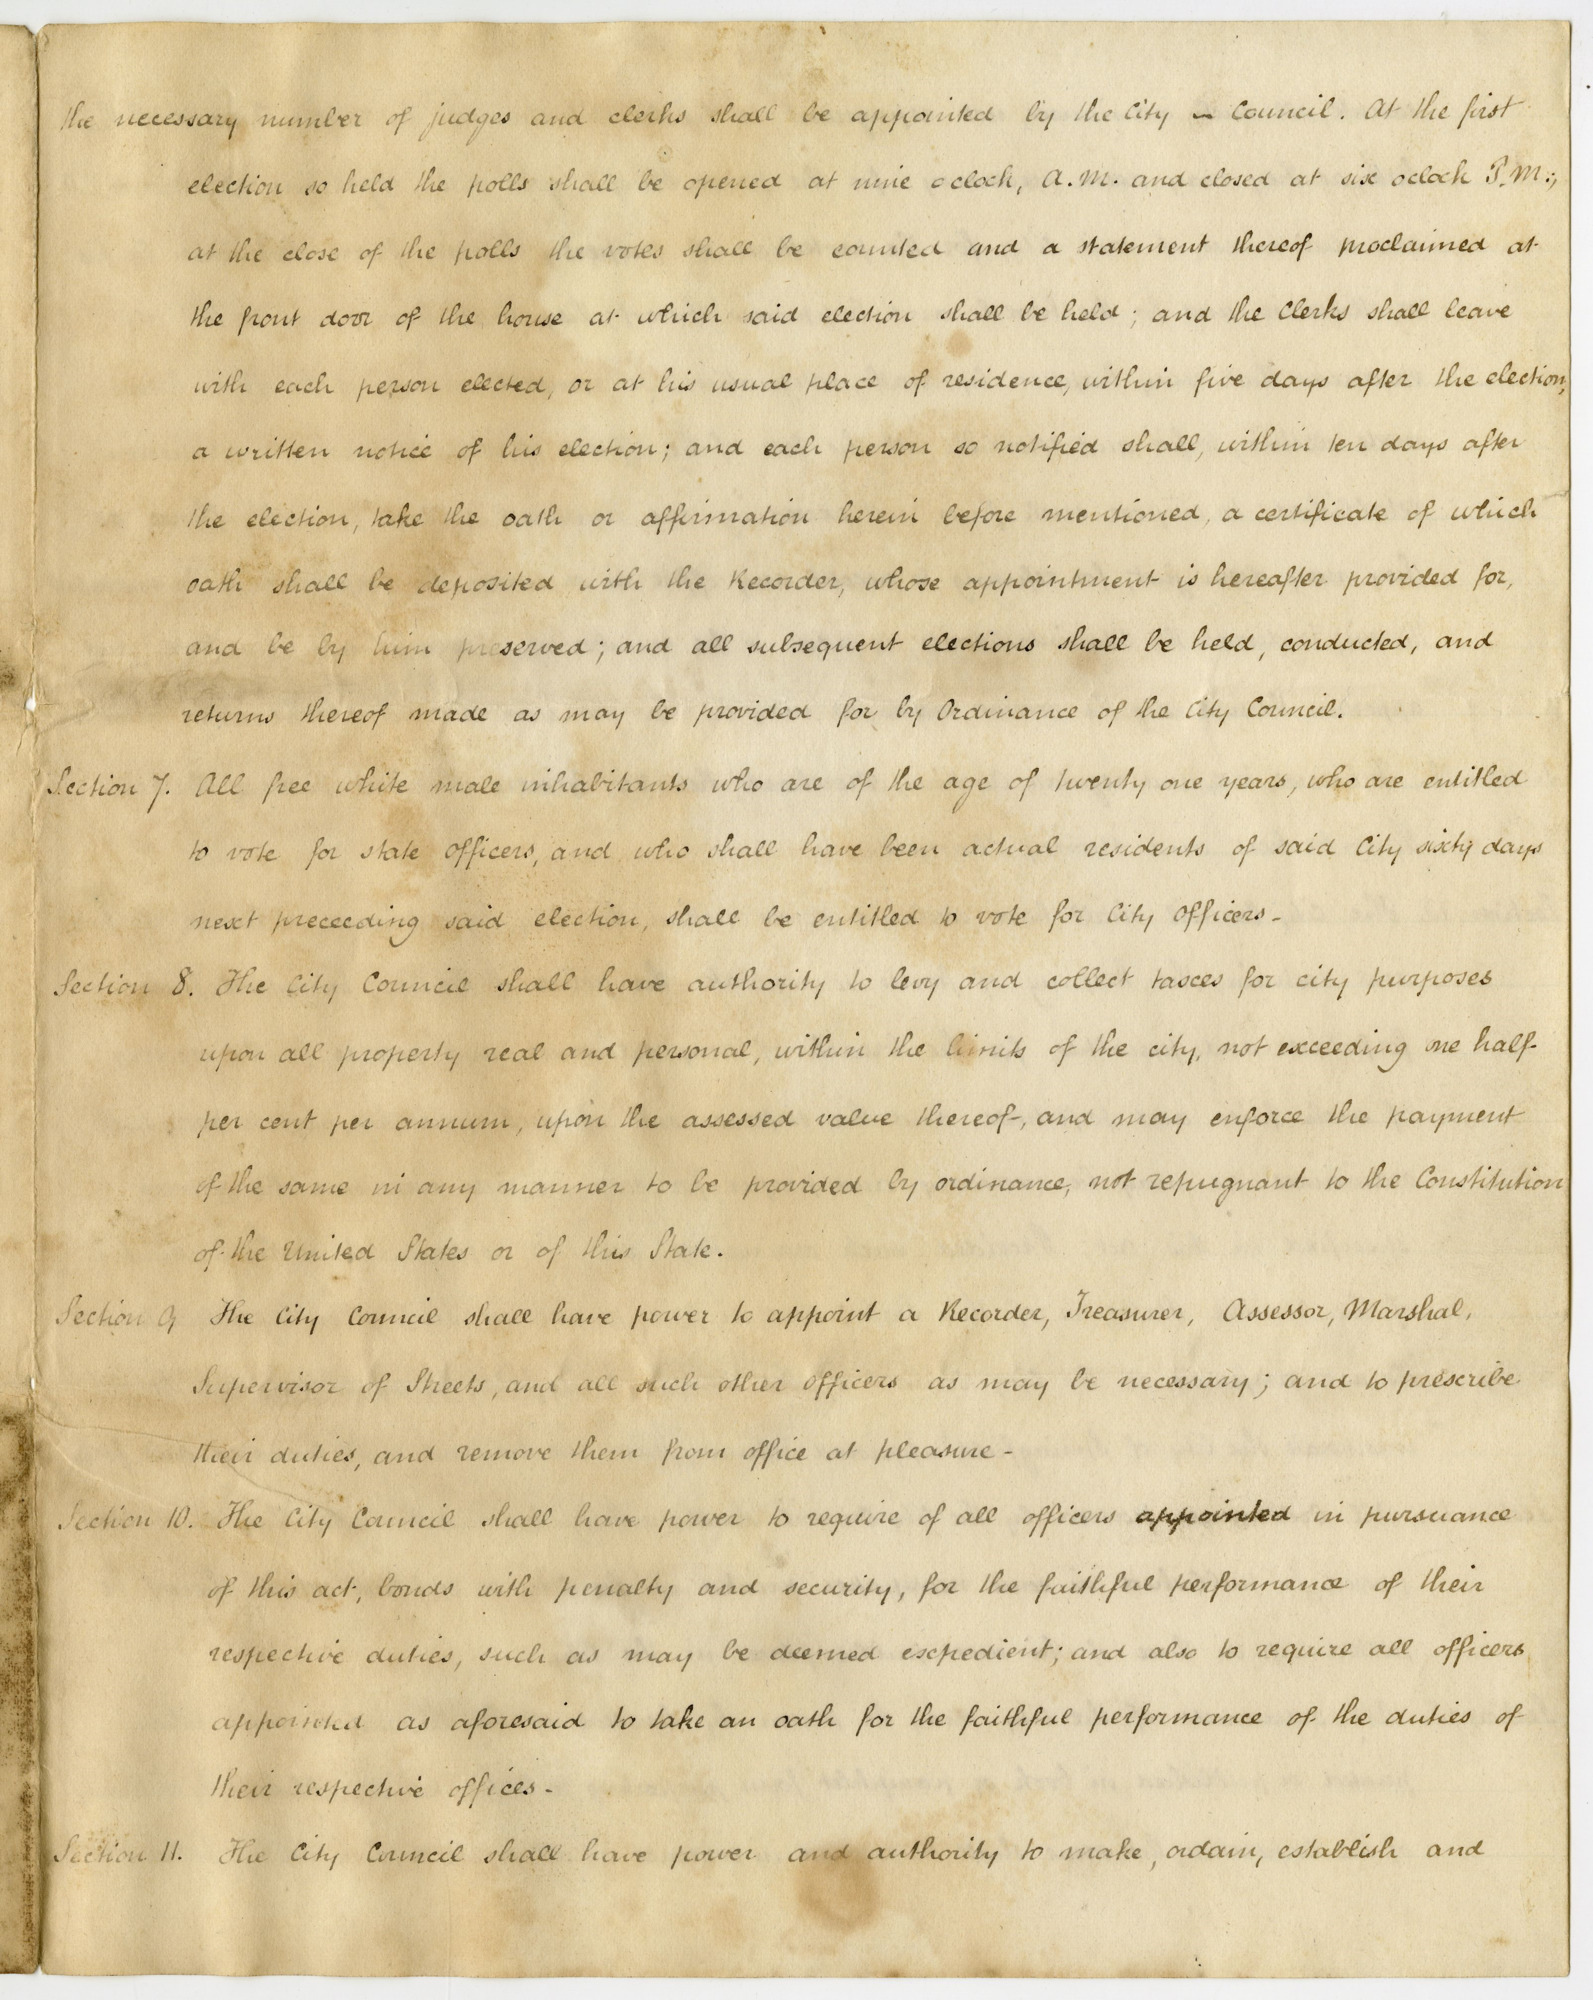 the necessary number of judges and clerks shall be appointed by the City - Council. At the first
election so held the polls shall be opened at nine oclock, A.M. and closed at six oclock P.M.;
at the close of the polls the votes shall be counted and a statement thereof proclaimed at
the front door of the house at which said election shall be held; and the Clerks shall leave
with each person elected, or at his usual place of residence, within five days after the election,
a written notice of his election; and each person so notified shall, within ten days after
the election, take the oath or affirmation herein before mentioned, a certificate of which
oath shall be deposited with the Recorder, whose appointment is hereafter provided for,
and be by him preserved; and all subsequent elections shall be held, conducted, and
returns thereof made as may be provided for by Ordinance of the City Council.
Section 7. All free white male inhabitants who are of the age of twenty one years, who are entitled
to vote for state officers, and who shall have been actual residents of said City sixty days
next preceeding said election, shall be entitled to vote for City Officers-
Section 8. The City Council shall have authority to levy and collect taxes for city purposes
upon all property real and personal, within the limits of the city, not exceeding one half
per cent per annum, upon the assessed value thereof, and may enforce the payment
of the same in any manner to be provided by ordinance, not repugnant to the Constitution
of the United States or of this State.
Section 9 The City Council shall have power to appoint a Recorder, Treasurer, Assessor, Marshal,
Supervisor of Streets, and all such other officers as may be necessary; and to prescribe
their duties, and remove them from office at pleasure-
Section 10. The City Council shall have power to require of all officers appointed in pursuance
of this act, bonds with penalty and security, for the faithful performance of their
respective duties, such as may be deemed expedient; and also to require all officers
appointed as aforesaid to take an oath for the faithful performance of the duties of
their respective offices-
Section 11. The City Council shall have power and authority to make, ordain, establish and